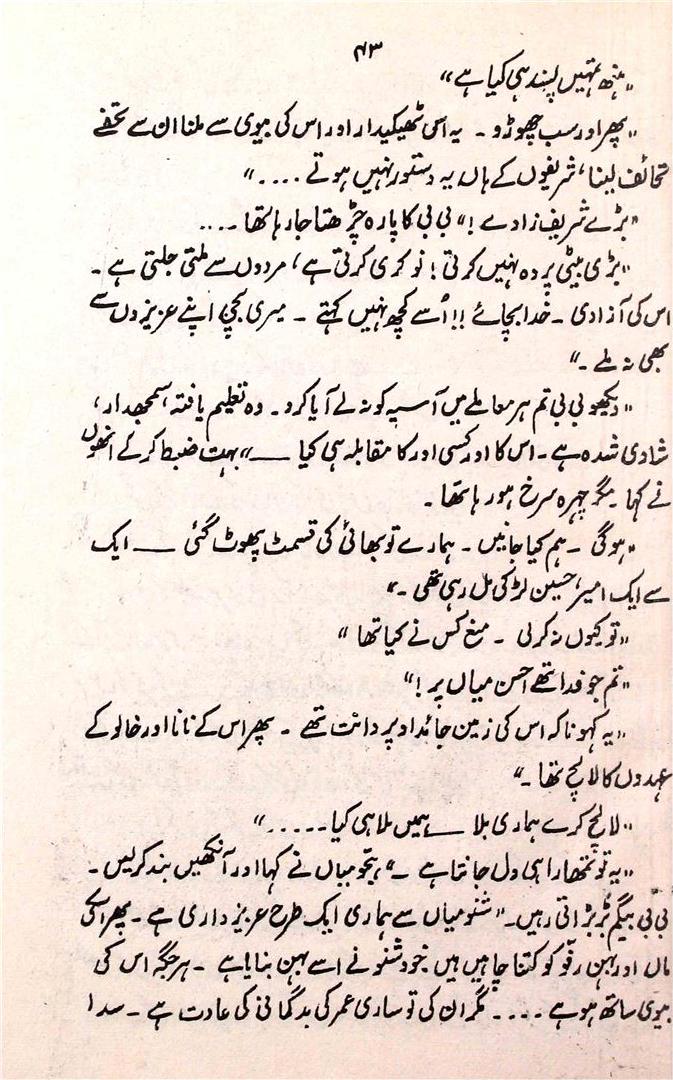 ۴۳
"ہنھ تمہیں پسند ہی کیا ہے"
"پھر اور سب چھوڑو ۔ یہ اس ٹھیکیدار اور اس کی بیوی سے ملنا ان سے تحفے
تحائف لینا، شریفوں کے ہاں یہ دستور نہیں ہوتے ...."
"بڑے شریف زادے!" بی بی کا پارہ چڑھتا جا رہا تھا ....
"بڑی بیٹی پردہ نہیں کرتی! نوکری کرتی ہے، مردوں سے ملتی جلتی ہے ۔
اس کی آزادی ۔ خدا بچائے!! اُسے کچھ نہیں کہتے ۔ میری بچی اپنے عزیزوں سے
بھی نہ ملے ۔"
"دیکھو بی بی تم ہر معاملے میں آسیہ کو نہ لے آیا کرو ۔ وہ تعلیم یافتہ، سمجھدار،
شادی شدہ ہے ۔ اس کا اور کسی اور کا مقابلہ ہی کیا ــــ" بہت ضبط کر کے انھوں
نے کہا ۔ مگر چہرہ سرخ ہو رہا تھا ۔
"ہوگی ۔ ہم کیا جانیں ۔ ہمارے تو بھائی کی قسمت پھوٹ گئی ــــ ایک
سے ایک امیر، حسین لڑکی مل رہی تھی ۔"
"تو کیوں نہ کرلی ۔ منع کس نے کیا تھا"
"تم جو فدا تھے احسن میاں پر!"
"یہ کہو نا کہ اس کی زمین جائداد پر دانت تھے ۔ پھر اس کے نانا اور خالو کے
عہدوں کا لالچ تھا ۔"
"لالچ کرے ہماری بلا ــــ ہمیں ملا ہی کیا ....."
"یہ تو تمھارا ہی دل جانتا ہے ۔" بجّو میاں نے کہا اور آنکھیں بند کرلیں ۔
بی بی بیگم بڑبڑاتی رہیں ۔ "شنو میاں سے ہماری ایک طرح عزیز داری ہے ۔ پھر اسکی
ماں اور بہن رفّو کو کتنا چاہیں ہیں خود شنو نے اسے بہن بنایا ہے ۔ ہر جگہ اس کی
بیوی ساتھ ہو ہے .... مگر ان کی تو ساری عمر کی بدگمانی کی عادت ہے ۔ سدا